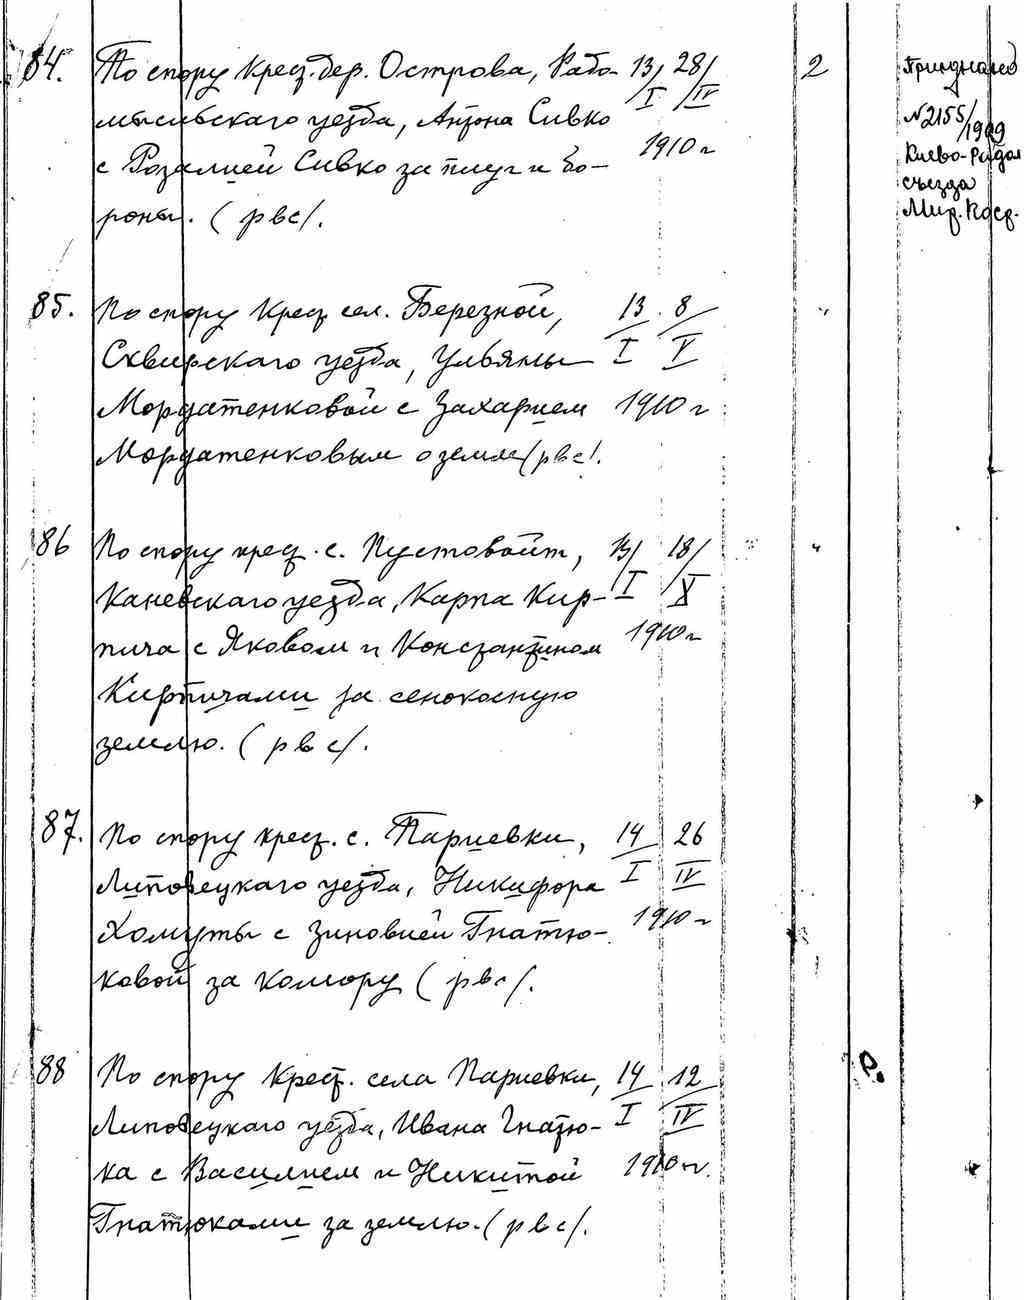 84. По спору Крест. дер. Острова, Радо- 13/I 28/IV 2
мысльскаго уезда, Антона Сивко
с Розалией Сивко за плуг и бо- 1910 г
роны. (рвс/.
№2155/1909
Киево-Радом
съезда
Мир. Поср.
85. По спору Крест сел. Березной, 13/I 8/V "
Сквирскаго уезда, Ульяны
Мордатенковой с Захарием 1910 г
Мордатенковым о земле (рвс/.
86 По спору крест. с. Пустовойт, 13/I 18/X "
Каневскаго уезда, Карпа Кир-
пича с Яковом и Константином 1910 г
Кирпичами за сенокосную
землю. (рвс/.
87. По спору крест. с. Париевки, 14/I 26/IV
Липовецкаго уезда, Никифора
Хомуты с Зиновией Гнатю- 1910 г
ковой за комору (рвс/.
88 По спору Крест. села Париевки, 14/I 12/IV Р.
Липовецкаго уезда, Ивана Гнатю-
ка с Василием и Никитой 1910 г.
Гнатюками за землю. (рвс/.